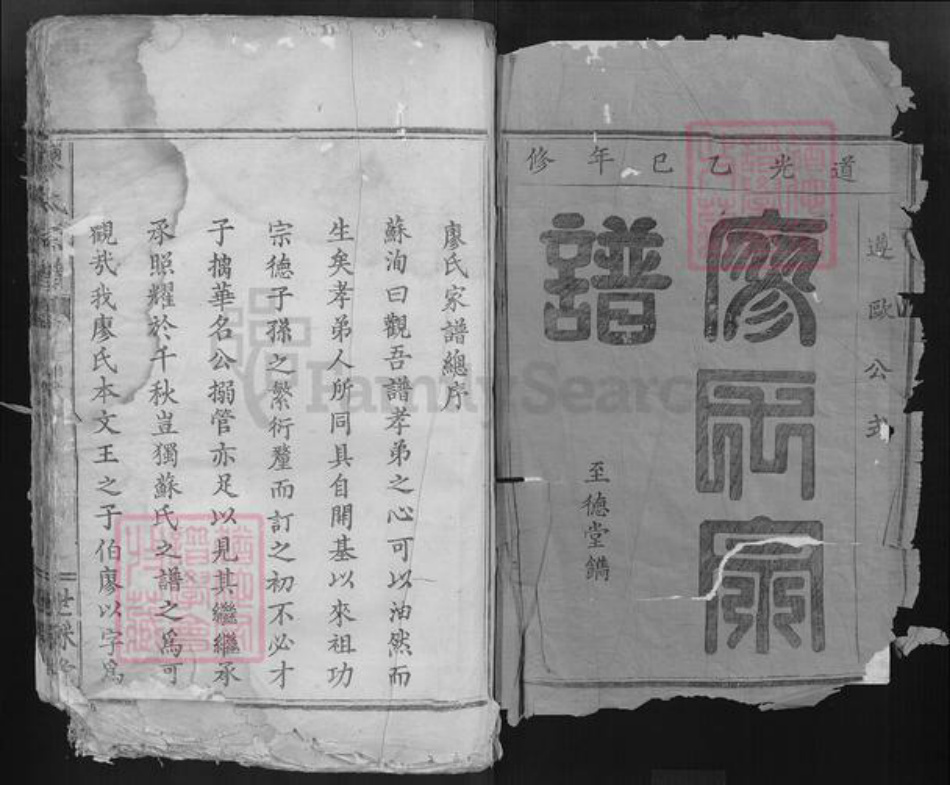 道光乙巳年修
遵歐公式
廖氏宗
譜
至德堂鐫
廖氏家譜總序
蘇洵曰觀吾譜孝弟之心可以油然而
生矣孝弟人所同具自開基以來祖功
宗德子孫之繁衍釐而訂之初不必才
子摛華名公搦管亦足以見其繼繼承
承照耀於千秋豈獨蘇氏之譜之爲可
觀哉我廖氏本文王之子伯廖以字爲
FamilySearch